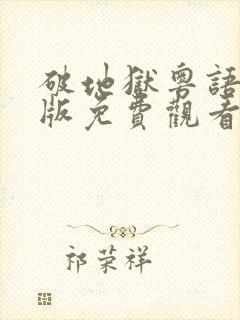 破地獄粵語
版免費觀看
祁荣祥